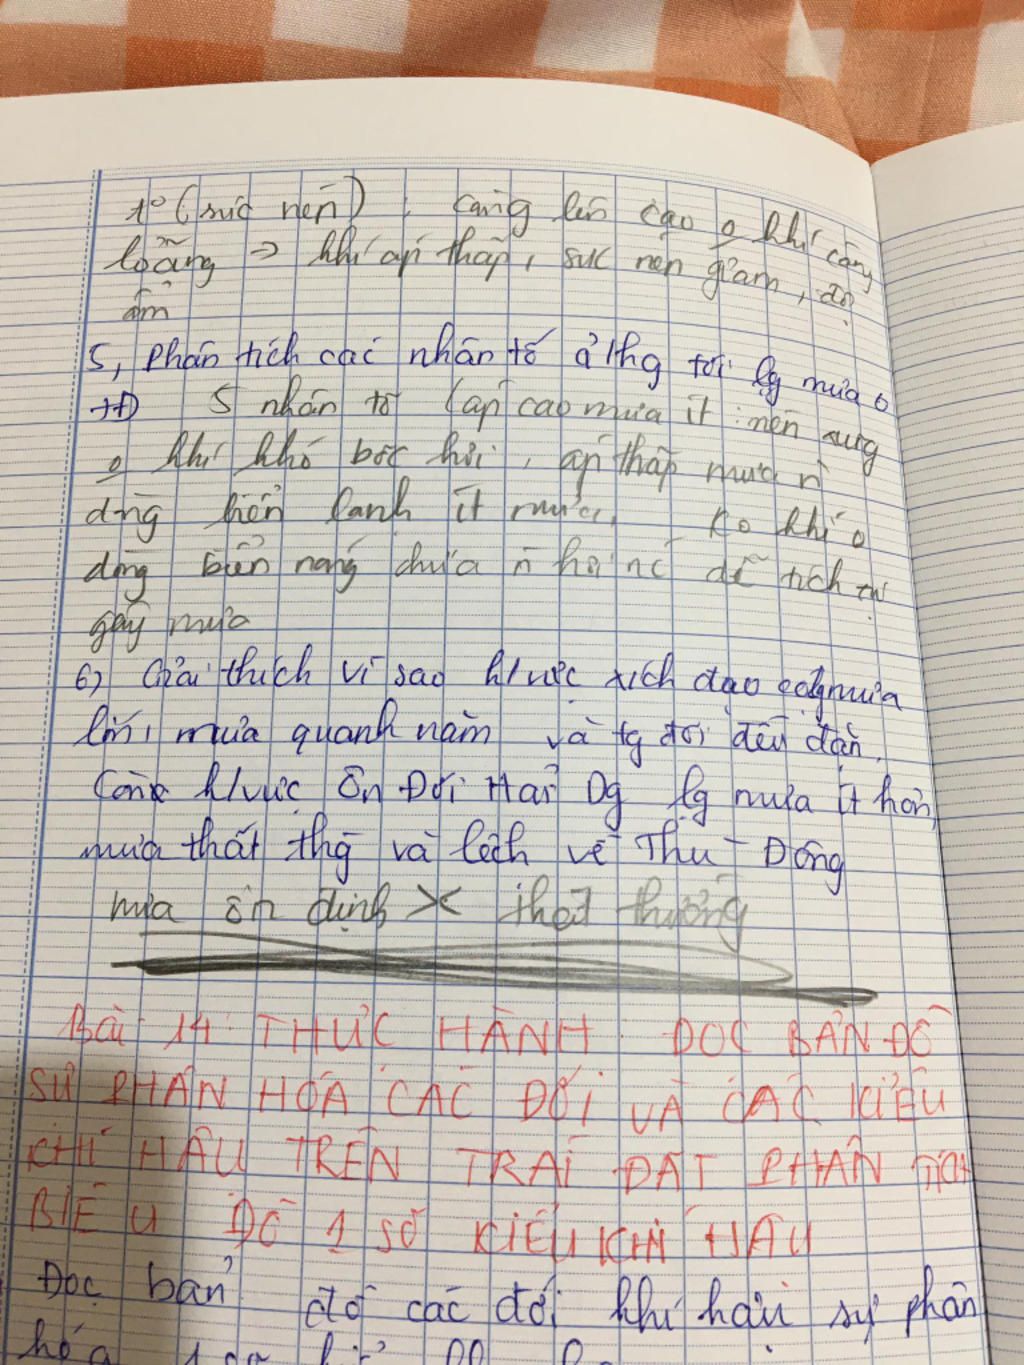 t° (sức nén) . càng lên cao o khí càng
loãng → khí áp thấp, sức nén giảm, độ
ẩm
5, Phân tích các nhân tố ả/hg tới lg mưa o
TĐ 5 nhân tố (áp cao mưa ít : nén xung
o khí khó bốc hơi, áp thấp mưa n
dòng biển lạnh ít mưa, ko khí o
dòng biển nóng chứa n hơi nc dễ tích tụ
gây mưa
6) Giải thích vì sao k/vực xích đạo có lg mưa
lớn, mưa quanh năm và tg đối đều đặn.
Còn k/vực Ôn Đới Hải Dg lg mưa ít hơn,
mưa thất thg và lệch về Thu - Đông
mưa ổn định >< thất thường
Bài 14: THỰC HÀNH: ĐỌC BẢN ĐỒ
SỰ PHÂN HÓA CÁC ĐỚI VÀ CÁC KIỂU
KHÍ HẬU TRÊN TRÁI ĐẤT PHÂN TÍCH
BIỂU ĐỒ 1 SỐ KIỂU KHÍ HẬU
Đọc bản đồ các đới khí hậu sự phân
hóa